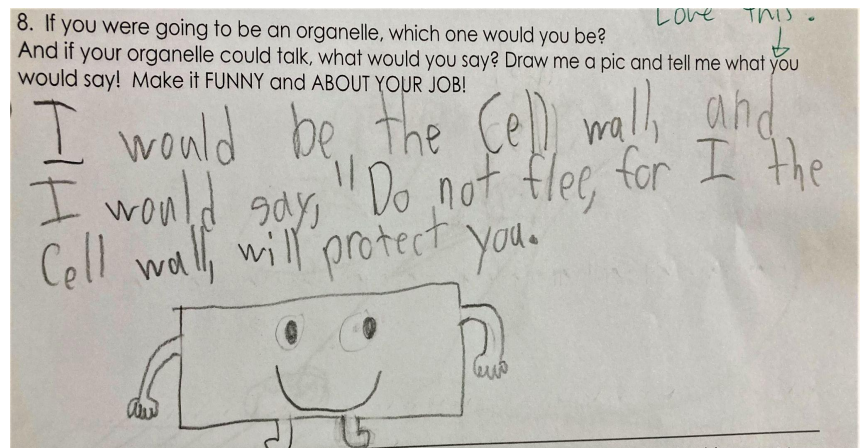 Love this.
8. If you were going to be an organelle, which one would you be?
And if your organelle could talk, what would you say? Draw me a pic and tell me what you
would say! Make it FUNNY and ABOUT YOUR JOB!
I would be the Cell wall, and
I would say, "Do not flee, for I the
Cell wall, will protect you.